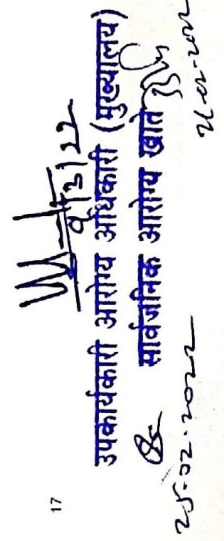 17
9/2/22
उपकार्यकारी आरोग्य अधिकारी (मुख्यालय)
सार्वजनिक आरोग्य खाते
25.02.2022
21-02-2022